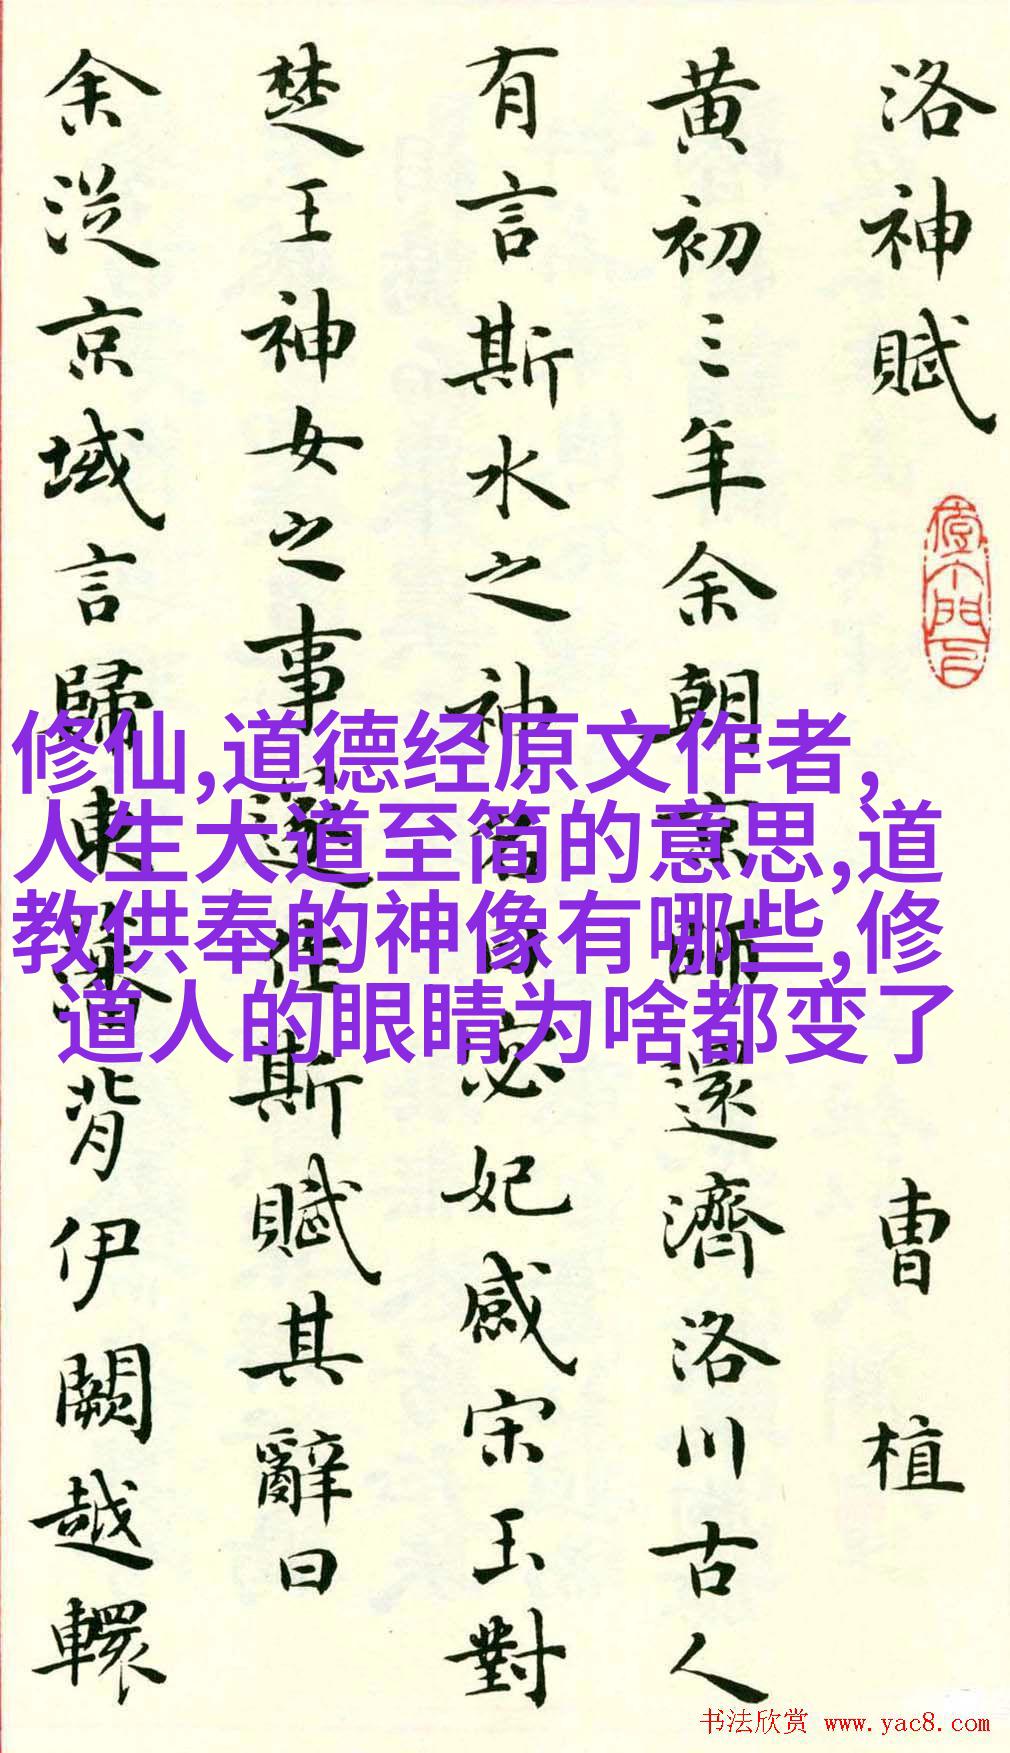 洛神賦
曹植
黄初三年余朝京師還濟洛川古人
有言斯水之神名曰宓妃感宋玉對
楚王神女之事遂作斯賦其辭曰
余從京域言歸東藩背伊闕越轘
修仙,道德经原文作者,
人生大道至简的意思,道
教供奉的神像有哪些,修
道人的眼睛为啥都变了
书法欣赏 www.yac8.com